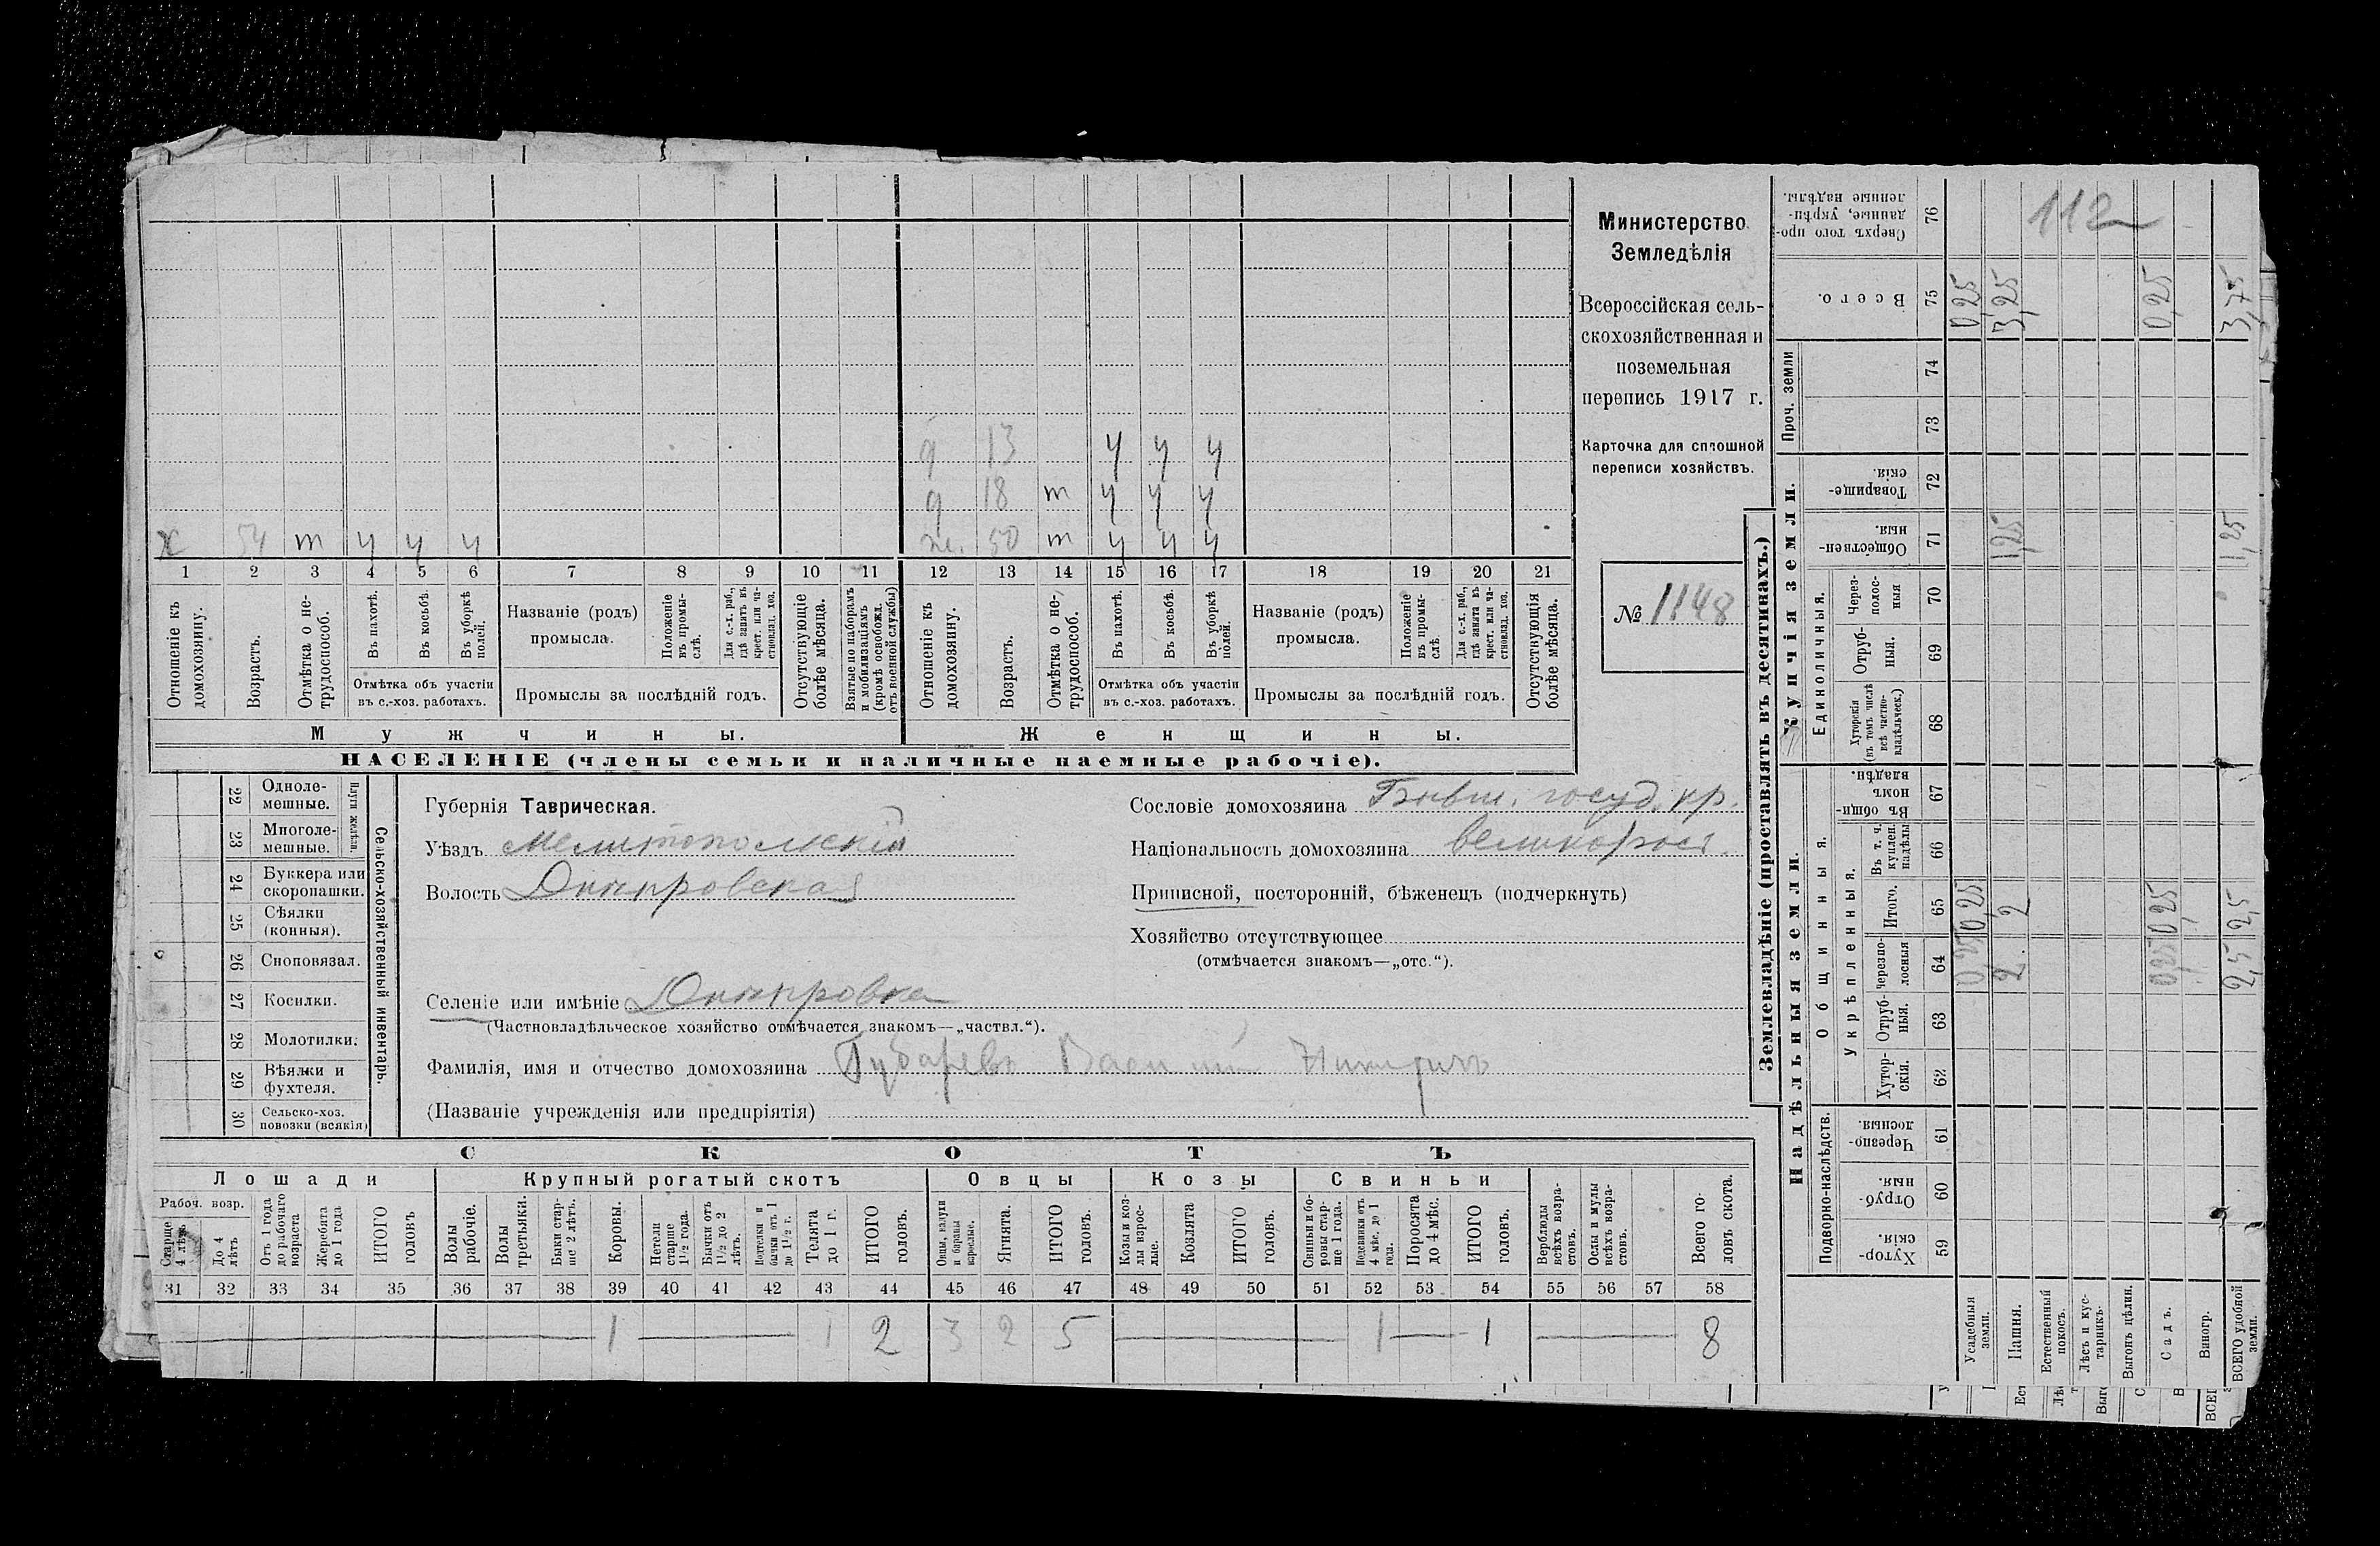 Министерство
Земледѣлія
Всероссійская сель-
скохозяйственная и
поземельная
перепись 1917 г.
Карточка для сплошной
переписи хозяйствъ.
№ 1148
д 13 у у у
д 18 т у у у
х 54 т у у у ж. 50 т у у у
1 2 3 4 5 6 7 8 9 10 11 12 13 14 15 16 17 18 19 20 21
Отношеніе къ домохозяину.
Возрастъ.
Отмѣтка о не-трудоспособ.
Въ пахотѣ.
Въ косьбѣ.
Въ уборкѣ полей.
Отмѣтка объ участіи
въ с.-хоз. работахъ.
Названіе (родъ)
промысла.
Положеніе въ промы-слѣ.
Для с.-х. раб., гдѣ занятъ въ крест. или ча-стновлад. хоз.
Промыслы за послѣдній годъ.
Отсутствующіе болѣе мѣсяца.
Взятые по наборамъ и мобилизаціямъ (кромѣ освобожд. отъ военной службы)
Отношеніе къ домохозяину.
Возрастъ.
Отмѣтка о не-трудоспособ.
Въ пахотѣ.
Въ косьбѣ.
Въ уборкѣ полей.
Отмѣтка объ участіи
въ с.-хоз. работахъ.
Названіе (родъ)
промысла.
Положеніе въ промы-слѣ.
Для с.-х. раб., гдѣ занятъ въ крест. или ча-стновлад. хоз.
Промыслы за послѣдній годъ.
Отсутствующія болѣе мѣсяца.
Мужчины. Женщины.
НАСЕЛЕНІЕ (члены семьи и наличные наемные рабочіе).
22 Одноле-мешные.
23 Многоле-мешные.
Плуги желѣзн.
24 Буккера или скоропашки.
25 Сѣялки (конныя).
26 Сноповязал.
27 Косилки.
28 Молотилки.
29 Вѣялки и фухтеля.
30 Сельско-хоз. повозки (всякія)
Сельско-хозяйственный инвентарь.
Губернія Таврическая.
Уѣздъ Мелитопольскій
Волость Днѣпровская
Селеніе или имѣніе Днѣпровка
(Частновладѣльческое хозяйство отмѣчается знакомъ—„частвл.“).
Фамилія, имя и отчество домохозяина Губаревъ Василій
(Названіе учрежденія или предпріятія)
Сословіе домохозяина Бывш. госуд. кр.
Національность домохозяина великорос.
Приписной, посторонній, бѣженецъ (подчеркнуть)
Хозяйство отсутствующее
(отмѣчается знакомъ—„отс.“).
СКОТЪ
Лошади Крупный рогатый скотъ Овцы Козы Свиньи
Рабоч. возр.
Старше 4 лѣтъ
До 4 лѣтъ
Отъ 1 года до рабочаго возраста
Жеребята до 1 года
ИТОГО головъ
Волы рабочіе.
Волы третьяки.
Быки стар-ше 2 лѣтъ.
Коровы.
Нетели старше 1½ года.
Бычки отъ 1½ до 2 лѣтъ.
Подтелки и бычки отъ 1 до 1½ г.
Телята до 1 г.
ИТОГО головъ.
Овцы, валухи и бараны взрослые.
Ягнята.
ИТОГО головъ.
Козы и коз-лы взрос-лые.
Козлята
ИТОГО головъ.
Свиньи и бо-ровы стар-ше 1 года.
Подсвинки отъ 4 мѣс. до 1 года.
Поросята до 4 мѣс.
ИТОГО головъ.
Верблюды всѣхъ возра-стовъ.
Ослы и мулы всѣхъ возра-стовъ.
Всего го-ловъ скота.
31 32 33 34 35 36 37 38 39 40 41 42 43 44 45 46 47 48 49 50 51 52 53 54 55 56 57 58
1 1 2 3 2 5 1 1 8
Землевладѣніе (проставлять въ десятинахъ.)
Надѣльныя земли. Купчія земли. Проч. земли
Подворно-наслѣдств. Общинныя. Укрѣпленныя. Единоличныя.
Хутор-скія. 59
Отруб-ныя. 60
Черезпо-лосныя. 61
Хутор-скія. 62
Отруб-ныя. 63
Черезпо-лосныя 64
Итого. 65
Въ т. ч. куплен. надѣлы 66
Въ общи-номъ владѣн. 67
Хуторскія (въ томъ числѣ всѣ частно-владѣльческ.) 68
Отруб-ныя. 69
Через-полос-ныя 70
Обществен-ныя. 71
Товарище-скія. 72
73
74
Всего. 75
Сверхъ того про-данные, укрѣп-ленные надѣлы. 76
112
Усадебныя земли. 0,25 0,25 0,25
Пашня. 2 2 1,25 3,25
Естественный покосъ.
Лѣсъ и кус-тарникъ.
Выгонъ цѣлин.
Садъ. 0,25 0,25 0,25
Виногр.
ВСЕГО удобной земли. 2,5 2,5 1,25 3,75